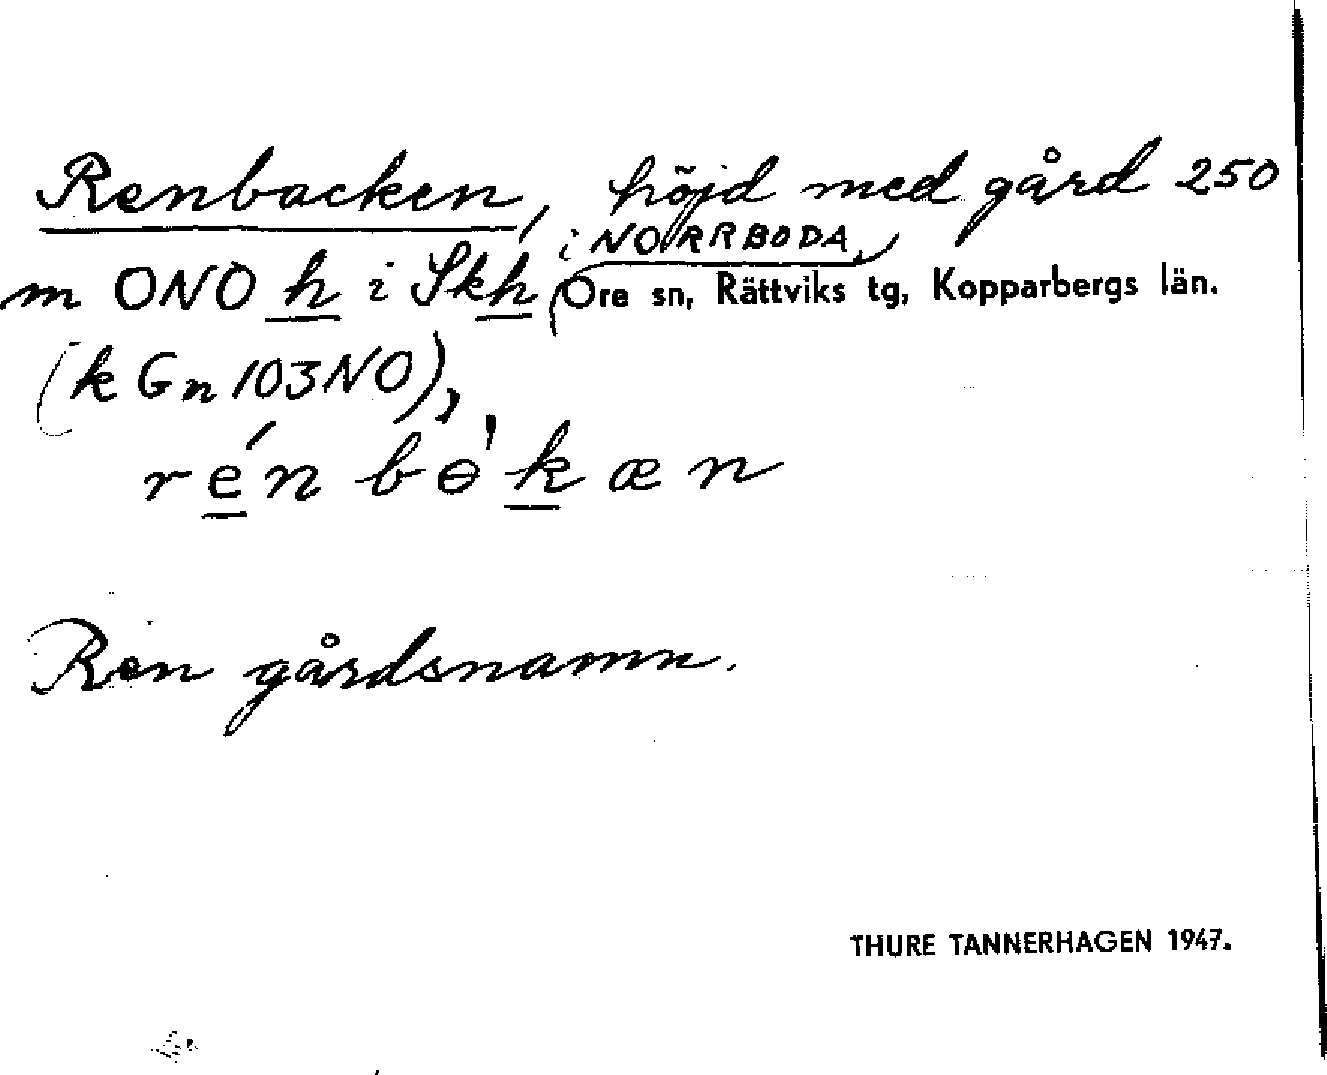 Renbacken, höjd med gård 250
i NORRBODA,
m ONO h i Skh Ore sn, Rättviks tg, Kopparbergs län.
(k Gn 103NO),
rén bɵ'kæn
Ren gårdsnamn.
THURE TANNERHAGEN 1947.